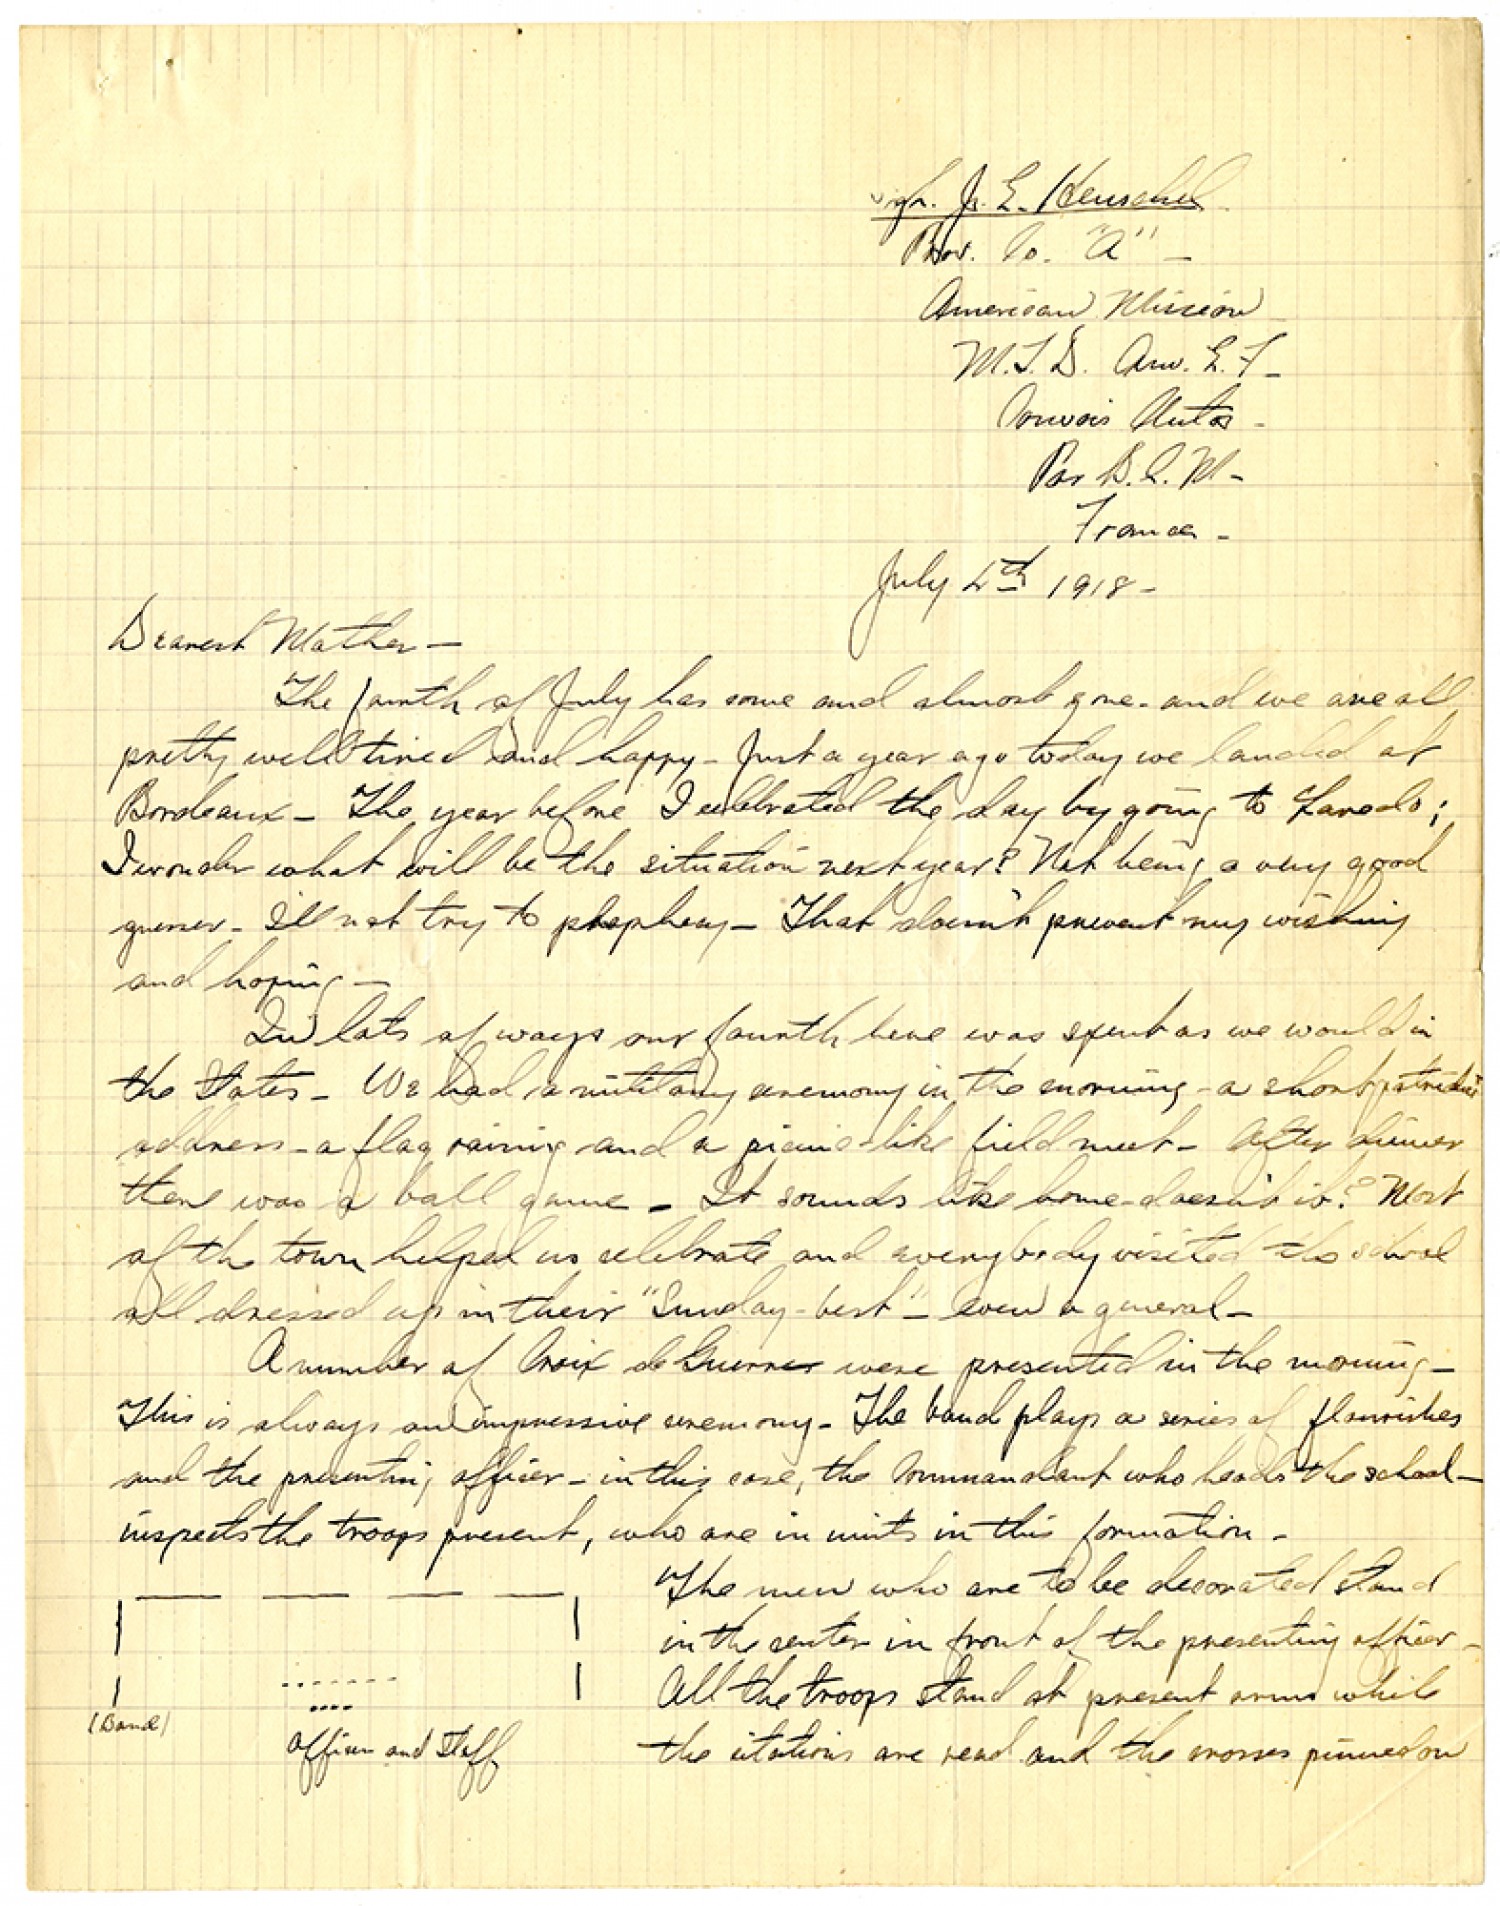 Jr. E. Henschel
Prov. Co. "A" -
American Mission
M.T.D. Am. E. F -
Convois Autos -
Par B.C.M -
France -
July 4th 1918 -
Dearest Mother -
The fourth of July has come and almost gone - and we are all
pretty well tired and happy - Just a year ago today we landed at
Bordeaux - The year before I celebrated the day by going to Laredo;
I wonder what will be the situation next year? Not being a very good
guesser - I'll not try to prophecy - That doesn't prevent my wishing
and hoping -
In lots of ways our fourth here was spent as we would in
the States - We had a military ceremony in the morning - a short patriotic
address - a flag raising and a picnic-like field meet - After dinner
there was a ball game - It sounds like home - doesn't it? Most
of the town helped us celebrate and everybody visited the school
all dressed up in their "Sunday-best" - even a general -
A number of Croix de Guerres were presented in the morning -
This is always an impressive ceremony - The band plays a series of flourishes
and the presenting officer - in this case, the Commandant who heads the school -
inspects the troops present, who are in units in this formation -
The men who are to be decorated stand
in the center in front of the presenting officer -
All the troops stand at present arms while
the citations are read and the crosses pinned on
(Band)
Officer and Staff